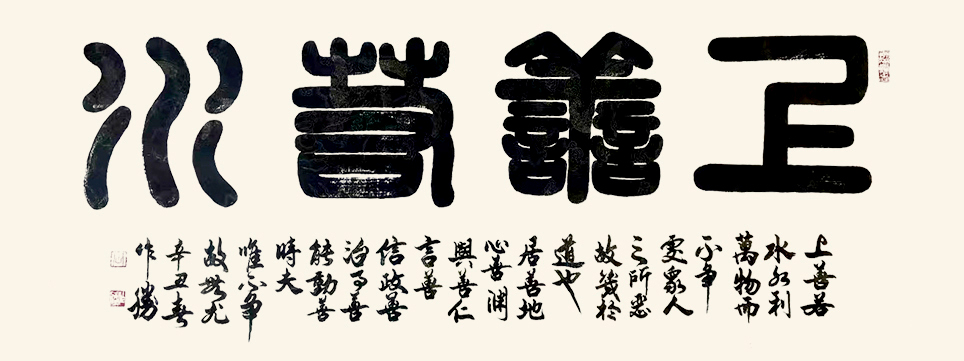 上善若水
上善若
水水利
萬物而
不争
處衆人
之所惡
故幾於
道也
居善地
心善淵
與善仁
言善
信政善
治事善
能動善
時夫
唯不争
故無尤
辛丑春
作勝